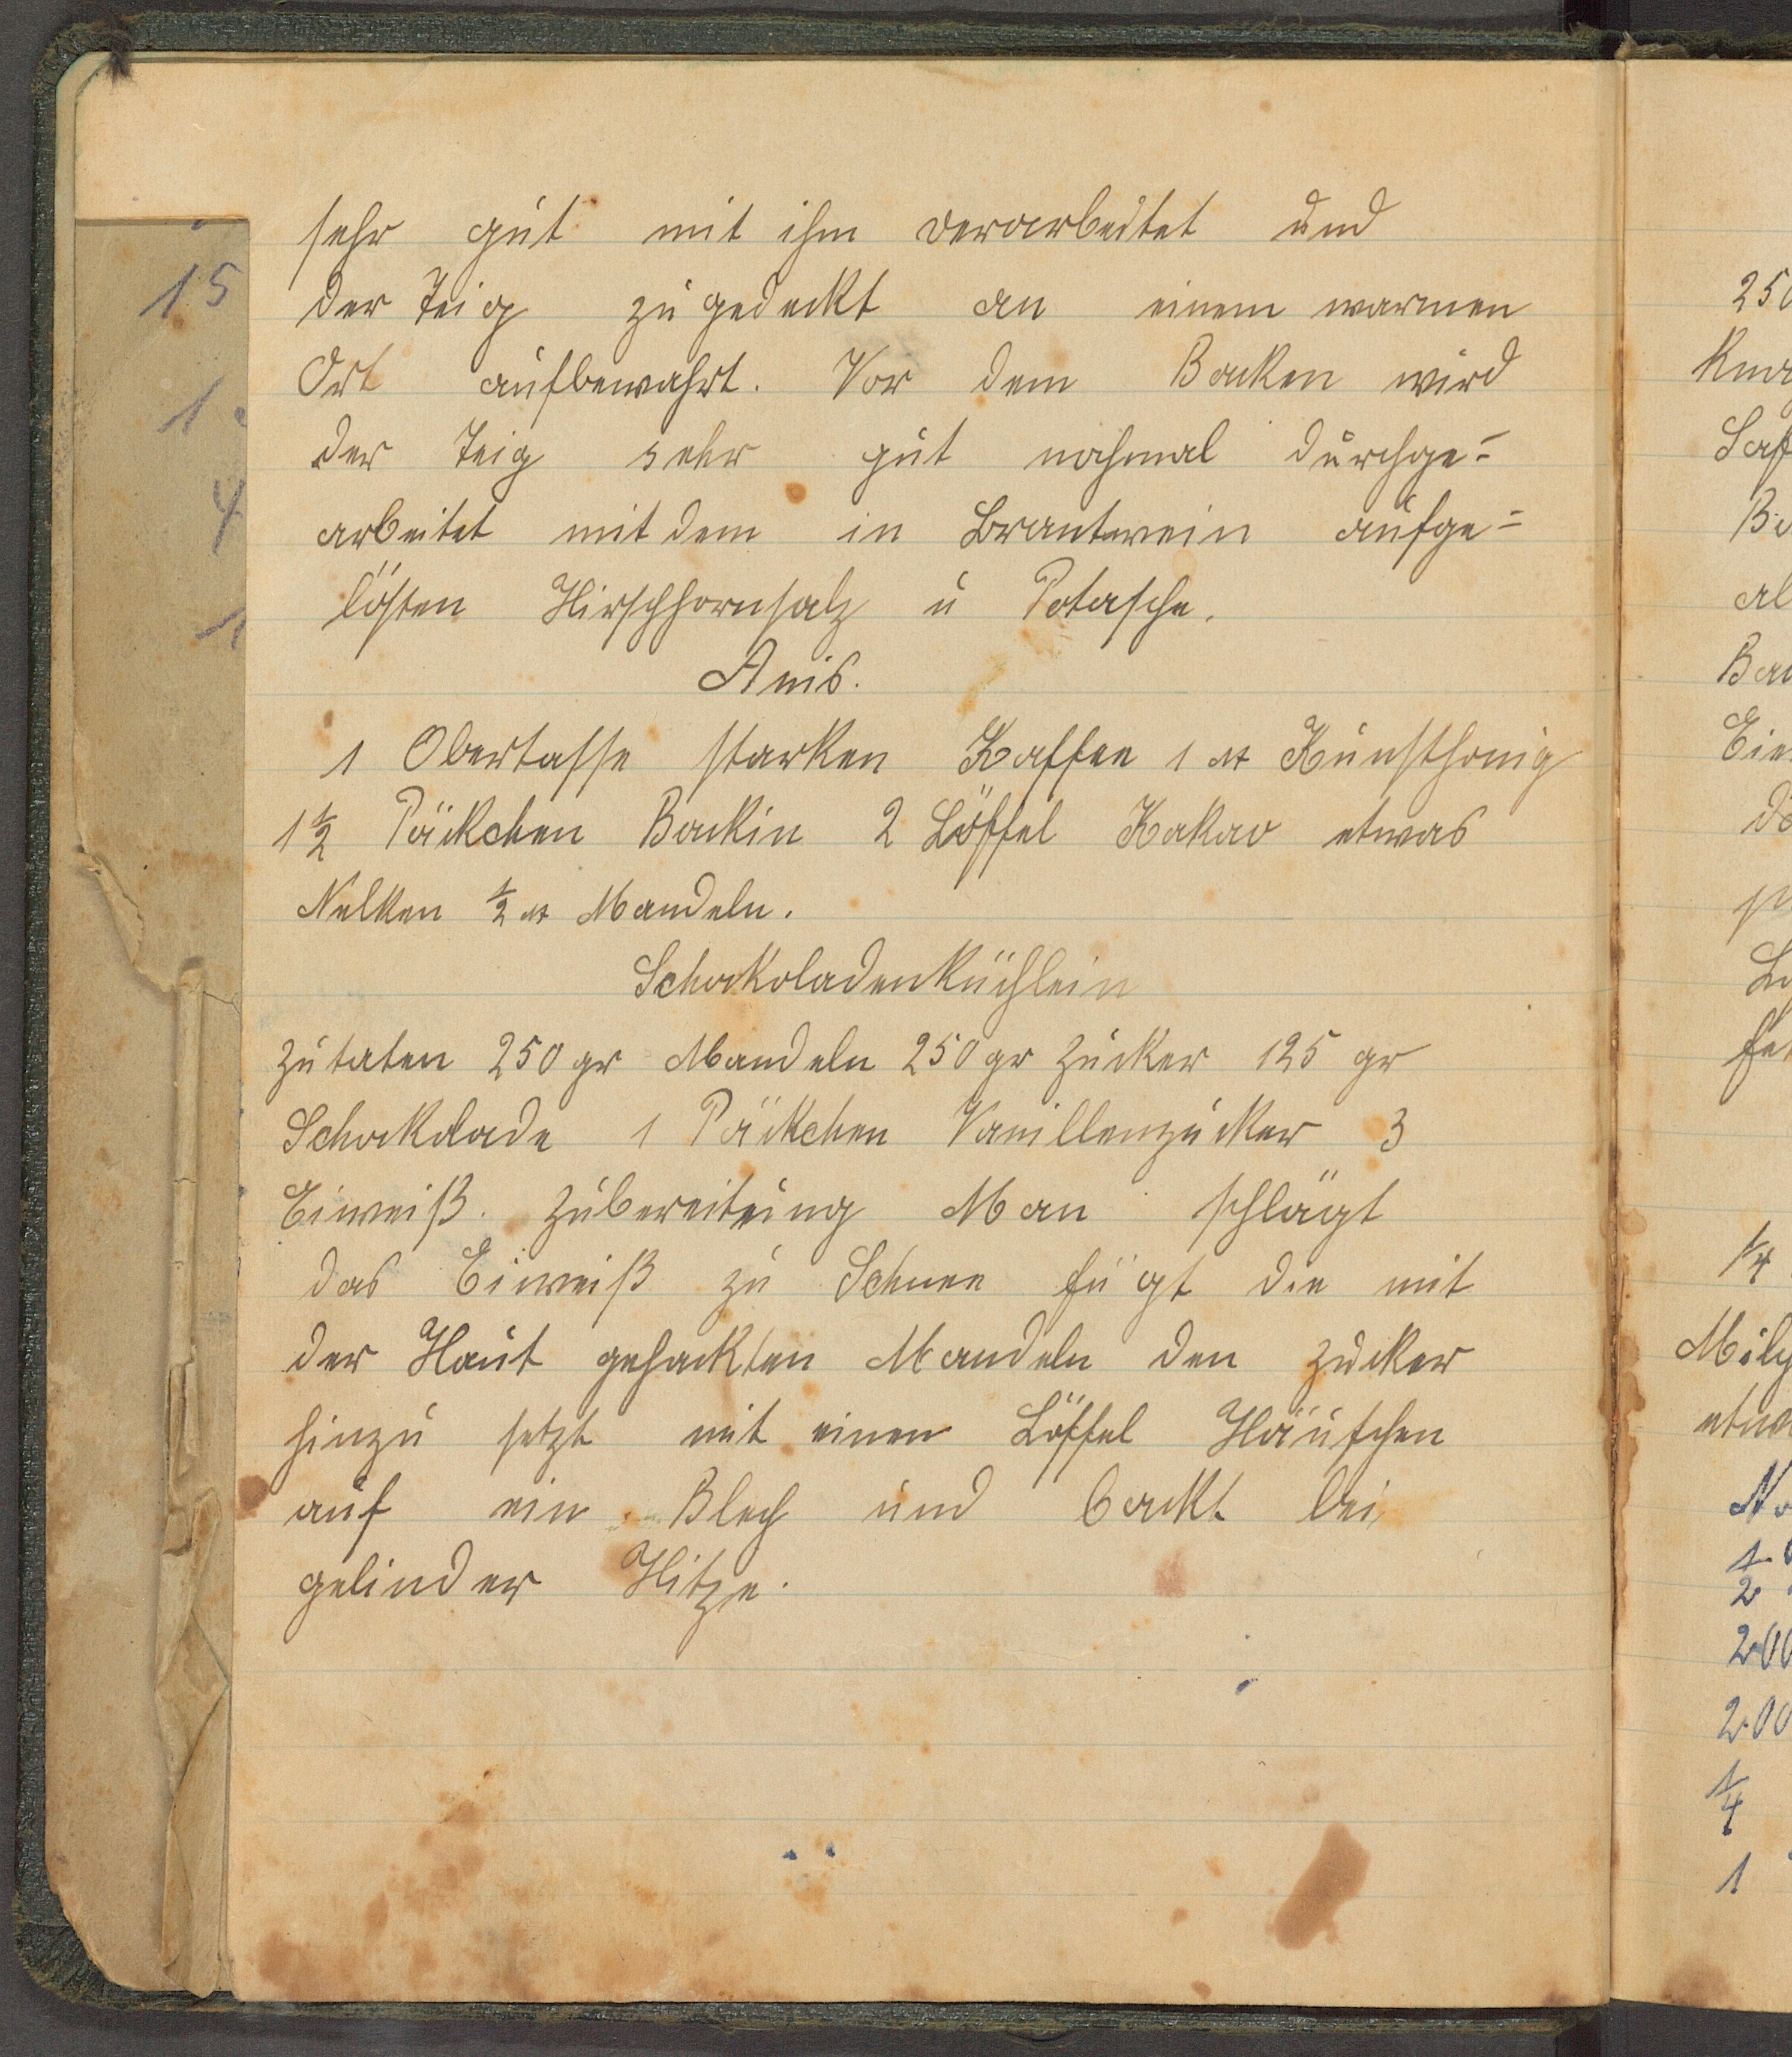 sehr gut mit ihm verarbeitet und
der Teig zugedeckt an einem warmen
Ort aufbewahrt. Vor dem Backen wird
der Teig sehr gut nochmal durchge=
arbeitet mit dem in Brantwein aufge=
lösten Hirschhornsalz u Potasche.
Anis.
1 Obertasse starken Kaffee 1 ℔ Kunsthonig
1½ Päckchen Backin 2 Löffel Kakao etwas
Nelken ½ ℔ Mandeln.
Schokoladenküchlein
Zutaten 250 gr Mandeln 250 gr Zucker 125 gr
Schokolade 1 Päckchen Vanillenzucker 3
Eiweiß. Zubereitung Man schlägt
das Eiweiß zu Schnee fügt die mit
der Haut gehackten Mandeln den Zucker
hinzu setzt mit einen Löffel Häufchen
auf ein Blech und backt bei
gelinder Hitze.
15
1
4
1
250
Bac
1/4
etwa
1/2
200
200
1/4
1